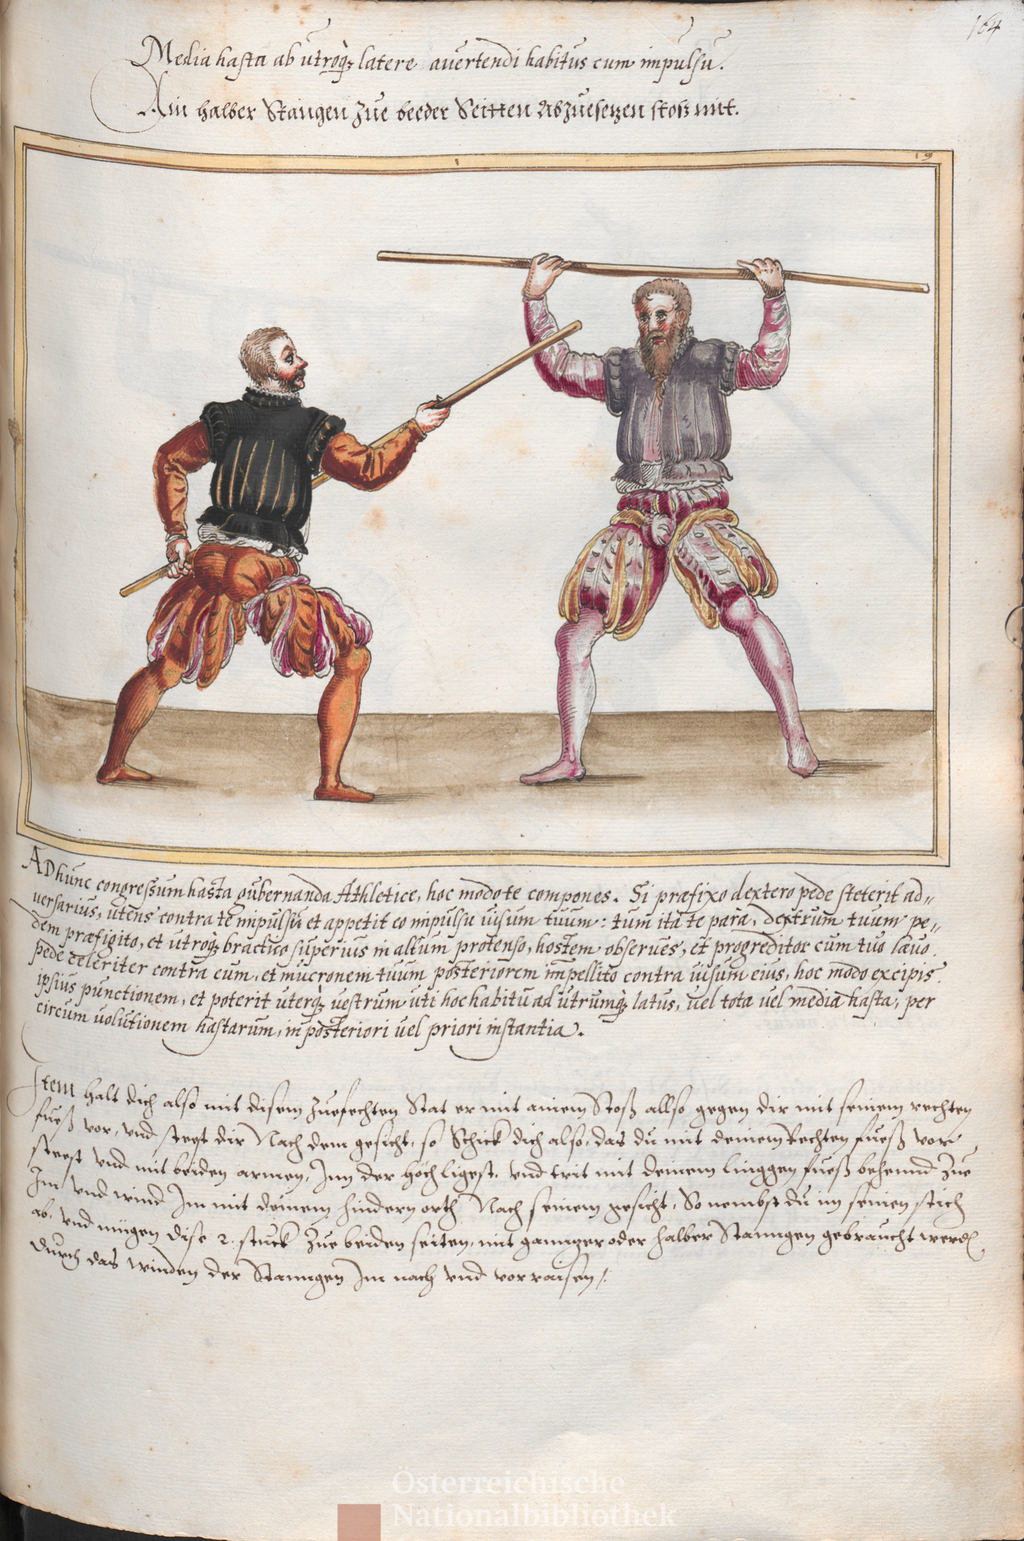 164
Media hasta ab utroq; latere avertendi habitus cum impulsu.
Ain halber Stangen zue beeder Seitten Abzuesetzen stoß mit.
19
AD hunc congressum hasta gubernanda Athletice, hoc modo te compones. Si præfixo dextero pede steterit ad-
versarius, utens contra te impulsu et appetit eo impulsu visum tuum: tum ita te para, dextrum tuum pe-
dem præfigito, et utroq; brachio superius in altum protenso, hostem observes, et progreditor cum tuo lævo
pede celeriter contra eum, et mucronem tuum posteriorem impellito contra visum eius, hoc modo excipis
ipsius punctionem, et poterit uterq; vestrum uti hoc habitu ad utrumq; latus, vel tota vel media hasta, per
circum volutionem hastarum, in posteriori vel priori instantia.
Item halt dich also mit disem zuefechten Stat er mit ainem Stoß allso gegen dir mit seinem rechten
fueß vor, und stest dir Nach dem gesicht, so Schick dich also, das du mit deinem Rechten fueß vor
steest und mit beiden armen, Inn der höch ligest. und trit mit deinem linggen fueß behennd zue
Im und wind Im mit deinem hindern orth Nach seinem gesicht, So nembst du im seinen stich
ab, und mügen dise 2. stuck zue beiden seiten, mit gannzer oder halber Stanngen gebraucht werdē,
durch das winden der Stanngen Im nach und vor
Österreichische
Nationalbibliothek